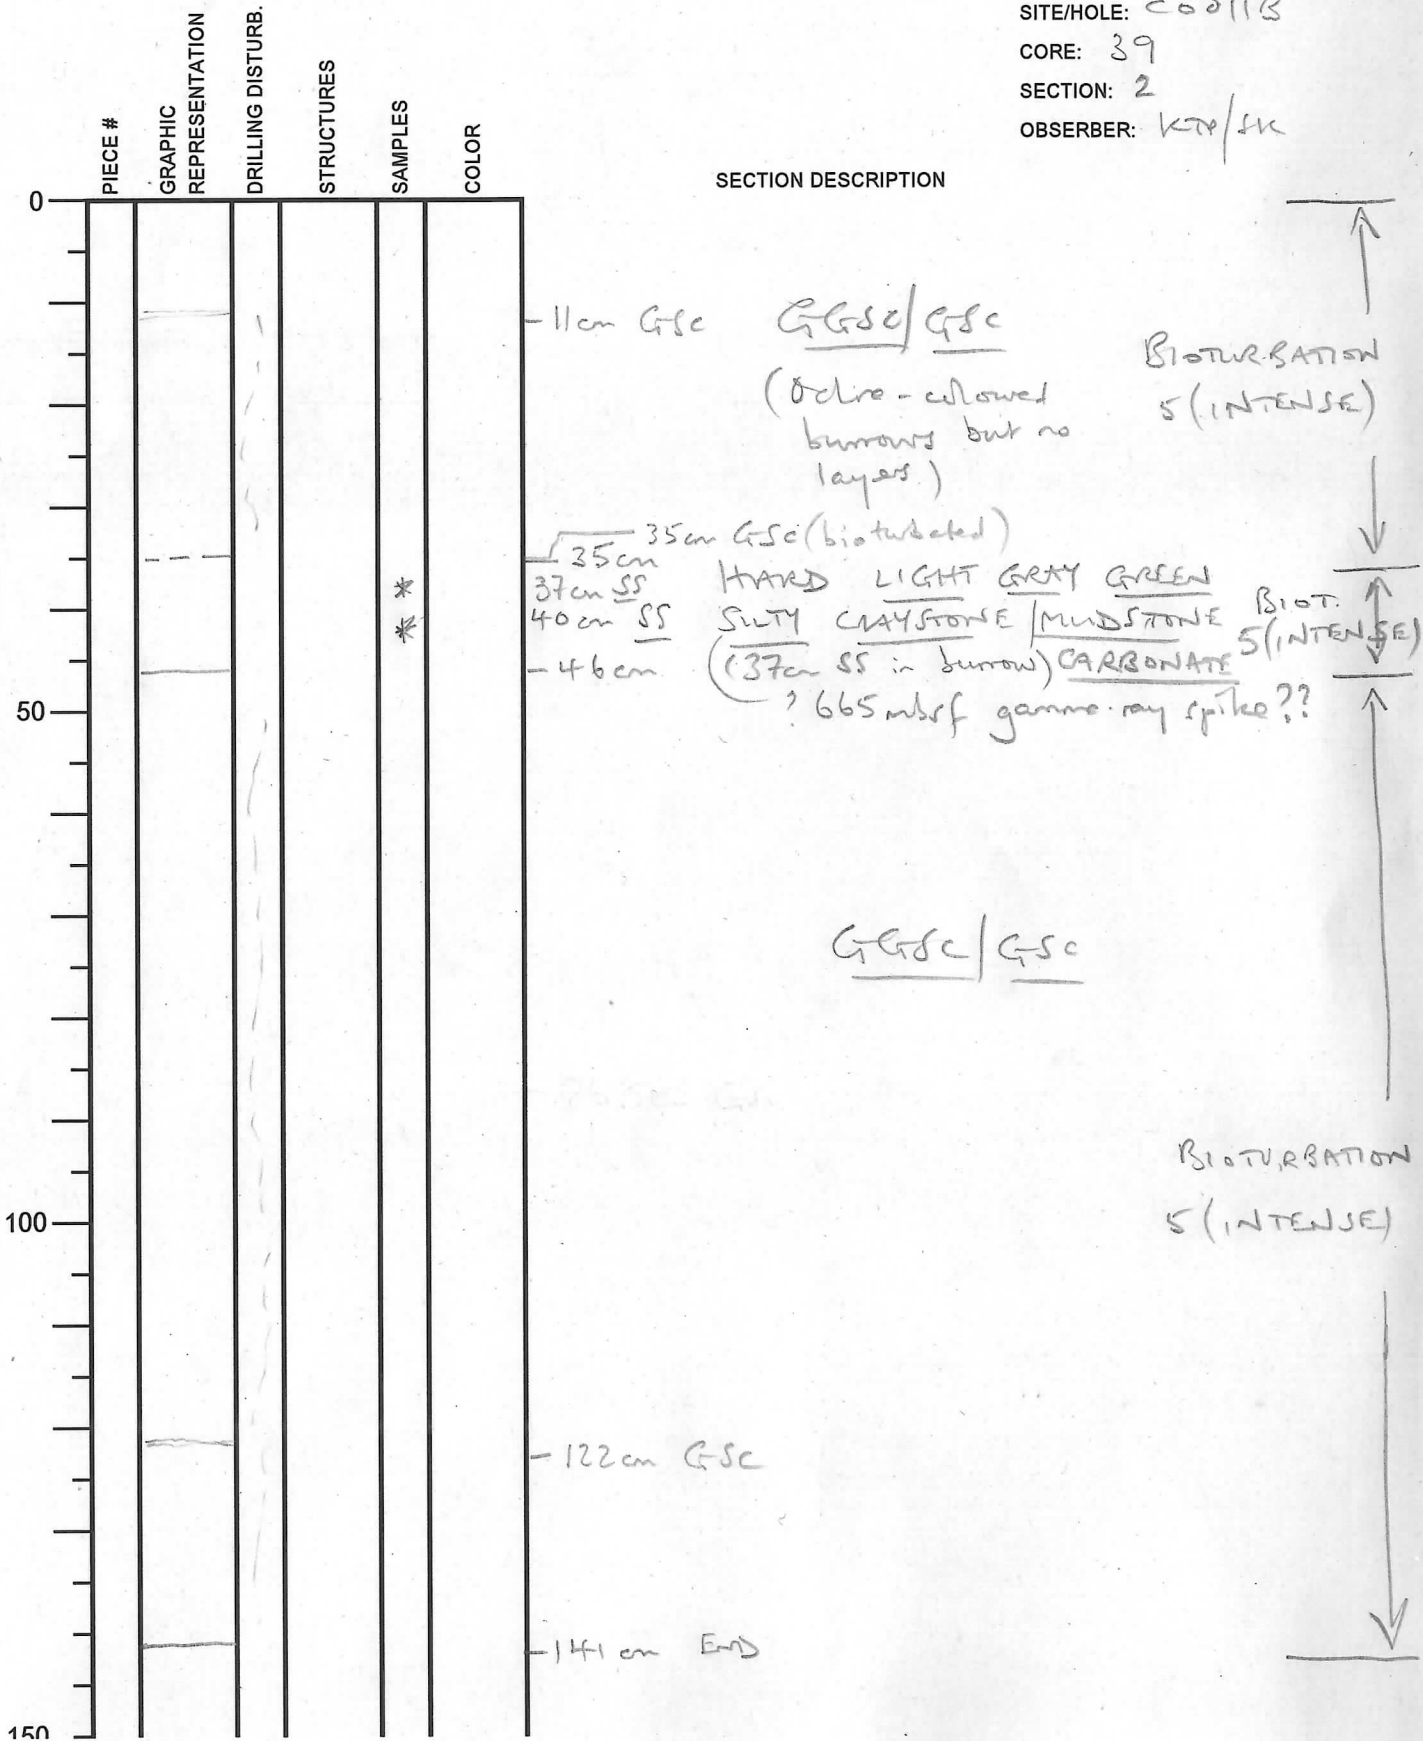 SITE/HOLE: C0011B
CORE: 39
SECTION: 2
OBSERBER:
PIECE #
GRAPHIC
REPRESENTATION
DRILLING DISTURB.
STRUCTURES
SAMPLES
COLOR
SECTION DESCRIPTION
0
-11cm GSc GGSc/GSc
(Ochre-coloured
burrows but no
layers)
BIOTURBATION
5 (INTENSE)
35cm GSc (bioturbated)
35cm
37cm SS HARD LIGHT GRAY GREEN
40cm SS SILTY CLAYSTONE/MUDSTONE
-46cm (37cm SS in burrow) CARBONATE
? 665 mbsf gamma-ray spike??
BIOT.
5 (INTENSE)
* 
*
50
GGSc/GSc
BIOTURBATION
5 (INTENSE)
100
-122cm GSc
-141cm END
150